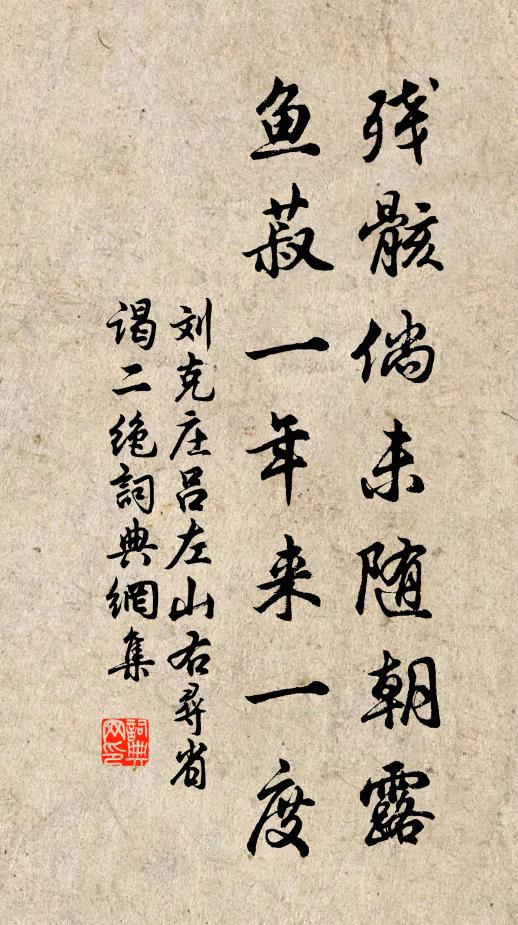 残骸倘未随朝露
鱼菽一年来一度
刘克庄吕左山右尋省
谒二绝詞典網集
詞典
网印